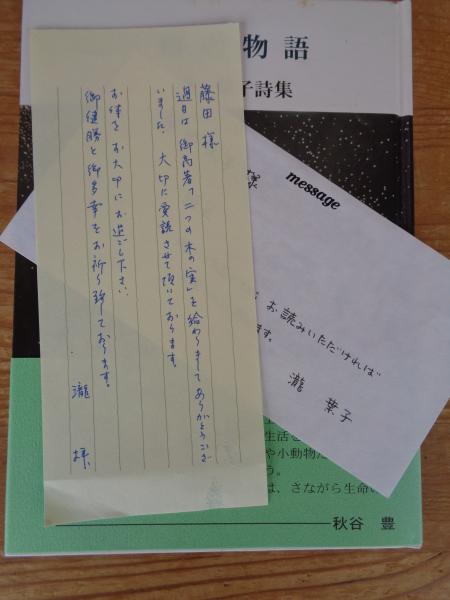 物語
子詩集
藤田 様
過日は 御高著「二つの木の実」を給わりましてありがとうござ
いました。大切に愛読させて頂いております。
お体をお大切にお過ごし下さい。
御健勝と御多幸をお祈り致しております。
瀧 様
様
message
お読みいただければ
ます。
瀧 葉子
生活を
や小動物た
う。
は、さながら生命い
秋谷 豊